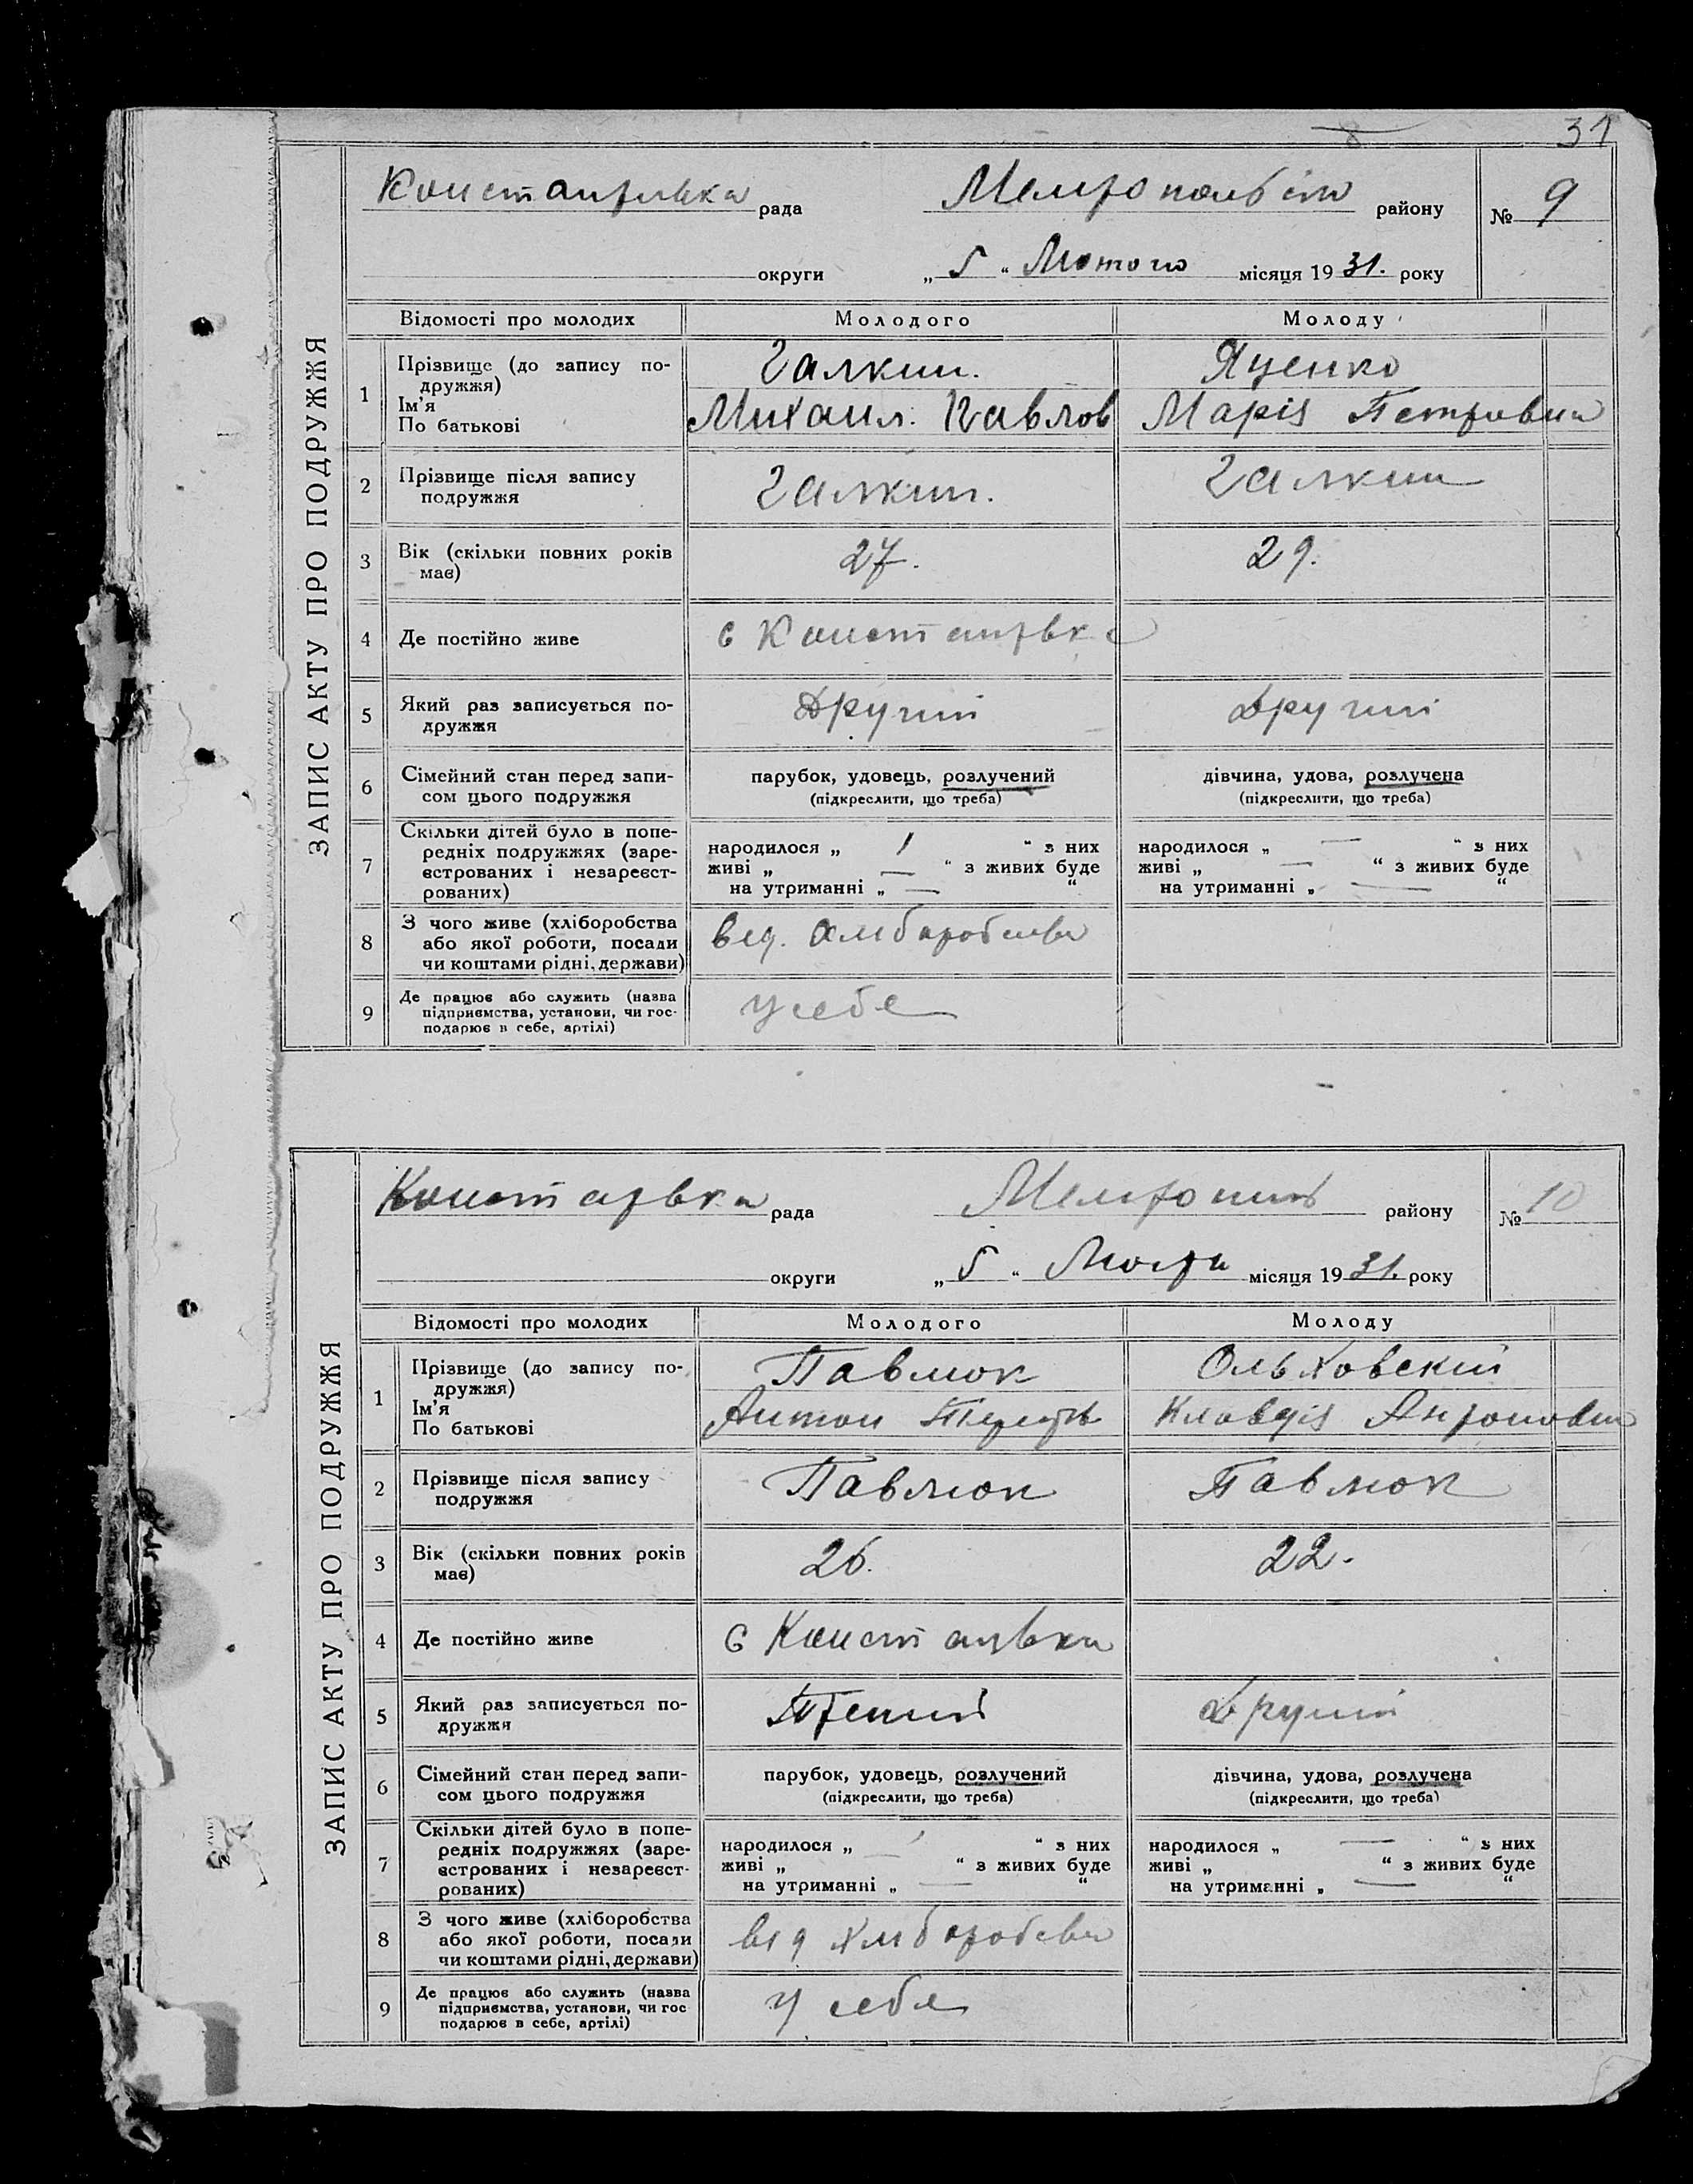 31
ЗАПИС АКТУ ПРО ПОДРУЖЖЯ
рада
району
№ 9
округи
„ 5 “ Лютого місяця 19 31. року
Відомості про молодих
Молодого
Молоду
1
Прізвище (до запису по-
дружжя)
Ім’я
По батькові
Галкин.
Михаил. Павлов
Яценко
Марія Петровна
2
Прізвище після запису
подружжя
Галкин.
Галкин
3
Вік (скільки повних років
має)
27.
29.
4
Де постійно живе
с
5
Який раз записується по-
дружжя
Другий
Другий
6
Сімейний стан перед запи-
сом цього подружжя
парубок, удовець, розлучений
(підкреслити, що треба)
дівчина, удова, розлучена
(підкреслити, що треба)
7
Скільки дітей було в попе-
редніх подружжях (заре-
єстрованих і незареєст-
рованих)
народилося „ 1 “ з них
живі „ — “ з живих буде
на утриманні „ — “
народилося „ — “ з них
живі „ — “ з живих буде
на утриманні „ — “
8
З чого живе (хліборобства
або якої роботи, посади
чи коштами рідні, держави)
9
Де працює або служить (назва
підприємства, установи, чи гос-
подарює в себе, артілі)
у себе
ЗАПИС АКТУ ПРО ПОДРУЖЖЯ
рада
району
№ 10
округи
„ 5 “ місяця 19 31. року
Відомості про молодих
Молодого
Молоду
1
Прізвище (до запису по-
дружжя)
Ім’я
По батькові
Павлюк
Антон
Ольховскій
Клавдія
2
Прізвище після запису
подружжя
Павлюк
Павлюк
3
Вік (скільки повних років
має)
26.
22.
4
Де постійно живе
с
5
Який раз записується по-
дружжя
Другий
6
Сімейний стан перед запи-
сом цього подружжя
парубок, удовець, розлучений
(підкреслити, що треба)
дівчина, удова, розлучена
(підкреслити, що треба)
7
Скільки дітей було в попе-
редніх подружжях (заре-
єстрованих і незареєст-
рованих)
народилося „ “ з них
живі „ — “ з живих буде
на утриманні „ — “
народилося „ — “ з них
живі „ “ з живих буде
на утриманні „ — “
8
З чого живе (хліборобства
або якої роботи, посади
чи коштами рідні, держави)
9
Де працює або служить (назва
підприємства, установи, чи гос
подарює в себе, артілі)
у себе